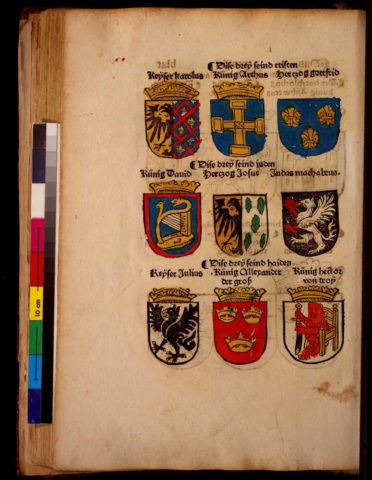 ¶ Dise dreÿ seind cristen
Keÿser karolus Künig Arthus Hertzog gottfrid
¶ Dise dreÿ seind juden
Künig Dauid Hertzog Josue Judas machabeus.
¶ Dise dreÿ seind haiden
Keÿser Julius Künig Allexander der groß Künig hector von troÿ
10 cm